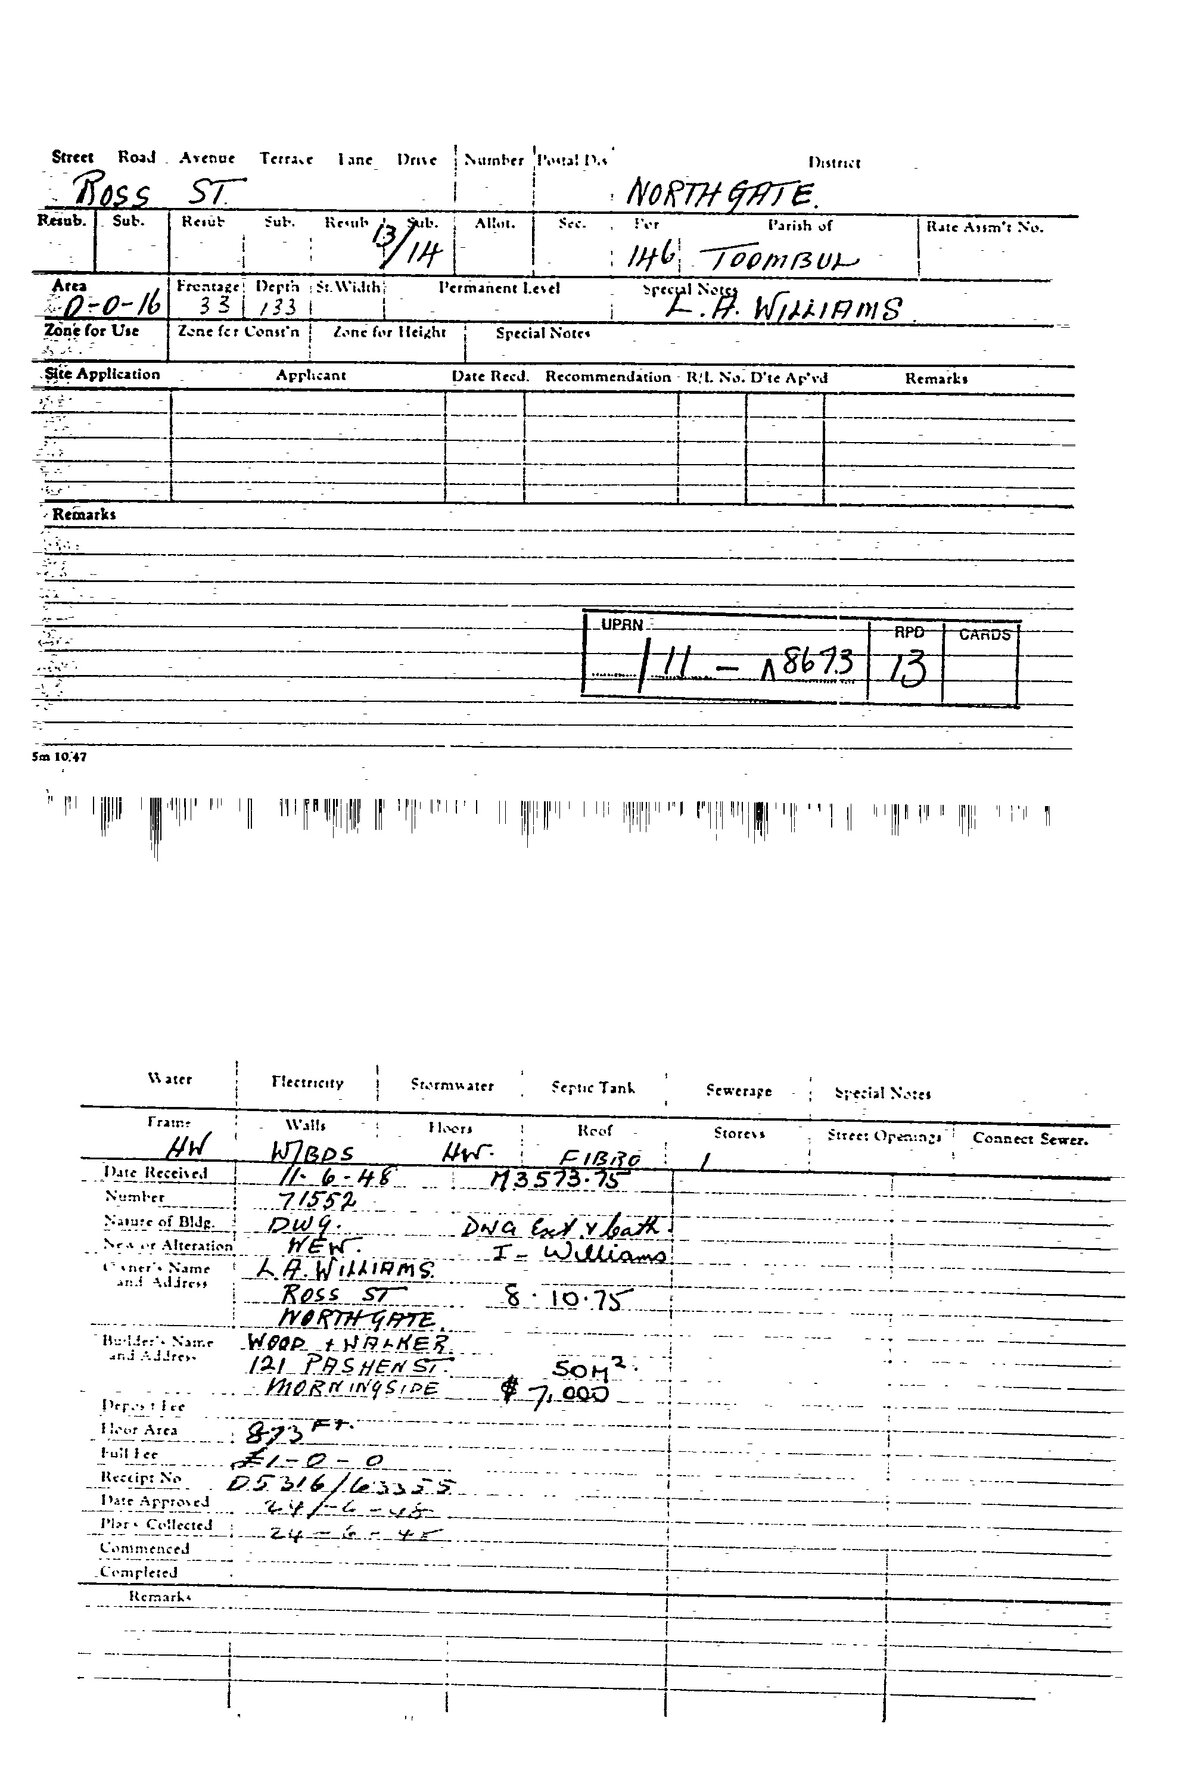 Street Road Avenue Terrace Lane Drive Number Postal Dis District
ROSS ST. NORTHGATE.
Resub. Sub. Resub Sub. Resub Sub. Allot. Sec. Por Parish of Rate Assm't No.
13/14 146 TOOMBUL
Area Frontage Depth St.Width Permanent Level Special Notes
0-0-16 33 133 L.A. WILLIAMS
Zone for Use Zone for Const'n Zone for Height Special Notes
Site Application Applicant Date Recd. Recommendation R/L No. D'te Ap'vd Remarks
Remarks
UPRN RPD CARDS
/11 - ʌ8673 13
5m 10.47
Water Electricity Stormwater Septic Tank Sewerage Special Notes
Frame Walls Floors Roof Storeys Street Openings Connect Sewer.
HW W/BDS HW. FIBRO 1
Date Received 11-6-48 M3573.75
Number 71552
Nature of Bldg. DWG. DWG Ext. & bath.
New or Alteration NEW. I - Williams
Owner's Name L.A. WILLIAMS.
and Address ROSS ST 8.10.75
NORTHGATE.
Builder's Name WOOD + WALKER
and Address 121 PASHEN ST. 50M².
MORNINGSIDE $7,000
Deposit Fee
Floor Area 873 FT.
Full Fee £1-0-0
Receipt No D5316/63355
Date Approved 24/-6-48
Plans Collected 24-6-48
Commenced
Completed
Remarks